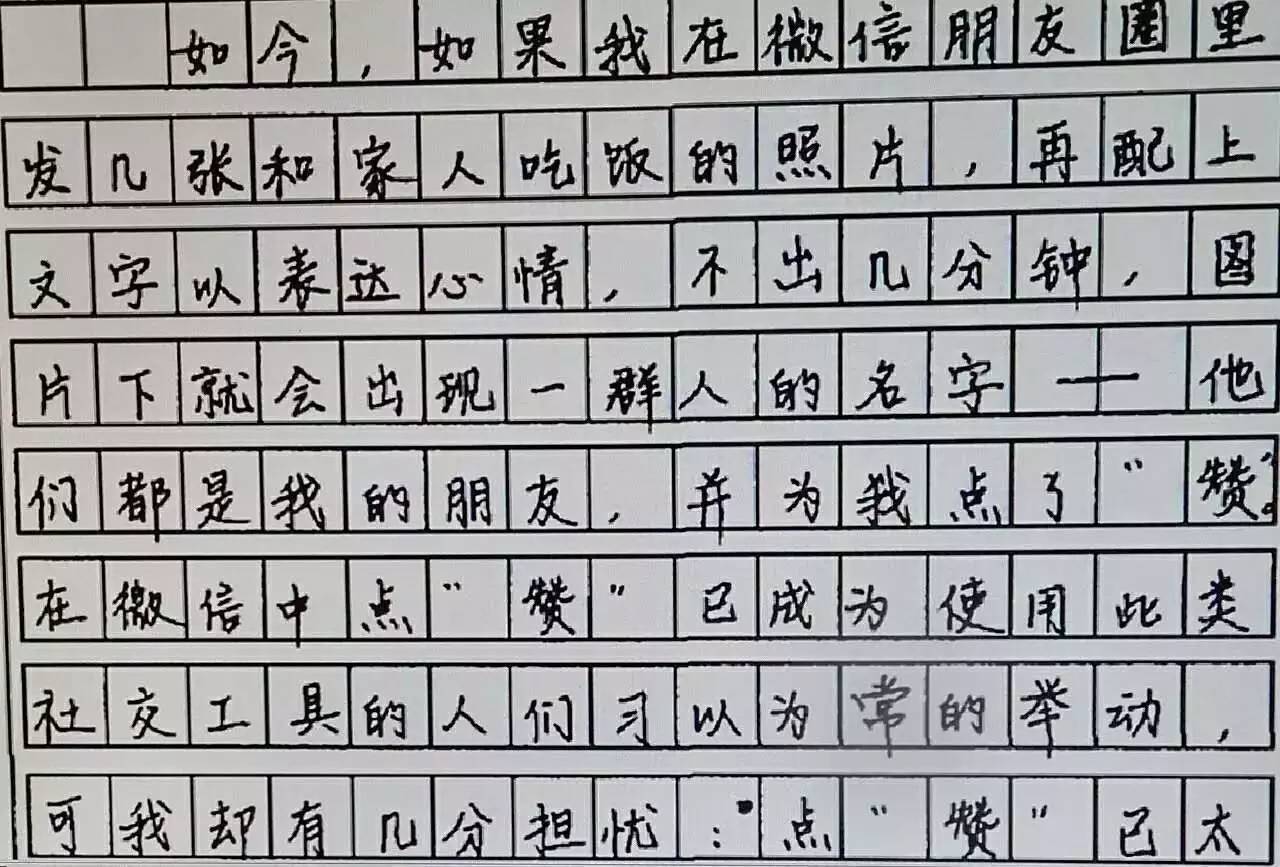 如今，如果我在微信朋友圈里
发几张和家人吃饭的照片，再配上
文字以表达心情，不出几分钟，图
片下就会出现一群人的名字——他
们都是我的朋友，并为我点了“赞”。
在微信中点“赞”已成为使用此类
社交工具的人们习以为常的举动，
可我却有几分担忧：点“赞”已太